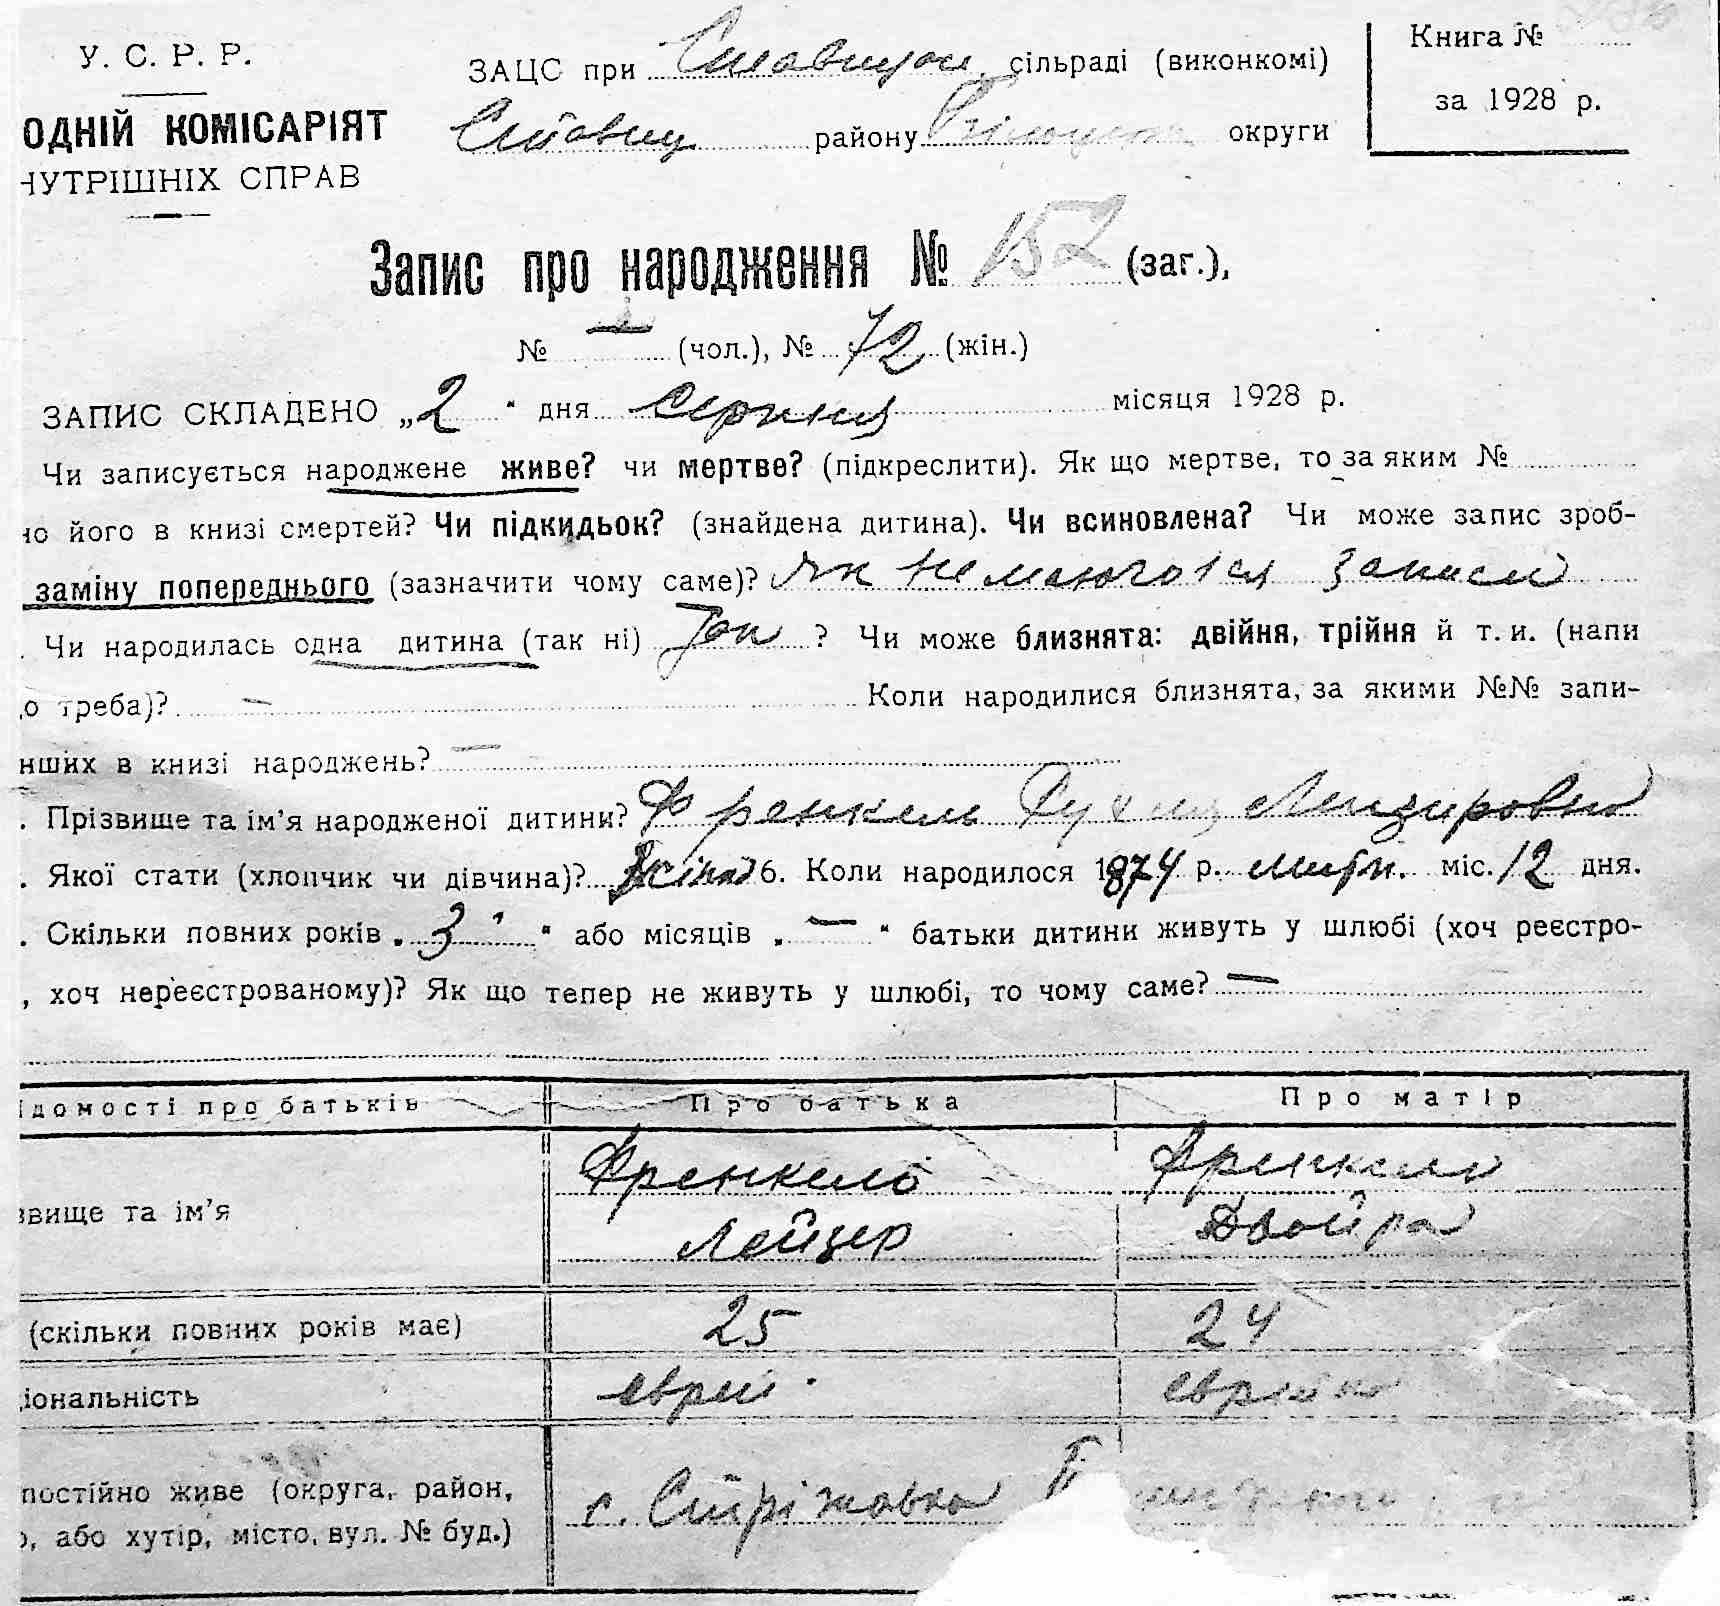 У. С. Р. Р.
ОДНІЙ КОМІСАРІЯТ
НУТРІШНІХ СПРАВ
ЗАЦС при сільраді (виконкомі)
району округи
Книга №
за 1928 р.
Запис про народження № 152 (заг.),
№ — (чол.), № 72 (жін.)
ЗАПИС СКЛАДЕНО „2“ дня серпня місяця 1928 р.
Чи записується народжене живе? чи мертве? (підкреслити). Як що мертве, то за яким №
но його в книзі смертей? Чи підкидьок? (знайдена дитина). Чи всиновлена? Чи може запис зроб-
заміну попереднього (зазначити чому саме)? як записи
. Чи народилась одна дитина (так ні) Так ? Чи може близнята: двійня, трійня й т. и. (напи
о треба)? — Коли народилися близнята, за якими №№ запи-
нших в книзі народжень? —
. Прізвище та ім'я народженої дитини? Френкель
. Якої стати (хлопчик чи дівчина)? 6. Коли народилося 1874 р. міс. 12 дня.
. Скільки повних років „3“ або місяців „—“ батьки дитини живуть у шлюбі (хоч реєстро-
, хоч нереєстрованому)? Як що тепер не живуть у шлюбі, то чому саме? —
ідомості про батьків Про батька Про матір
звище та ім'я Френкель Лейцер Френкель Двойра
(скільки повних років має) 25 24
ціональність еврей еврейка
постійно живе (округа, район, с. Стріжовка
о, або хутір, місто, вул. № буд.)